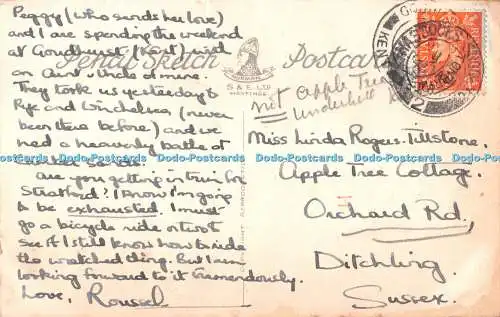 Peggy (who sends her love)
and I are spending the weekend
at Goudhurst (Kent) with
an Aunt & Uncle of mine.
They took us yesterday to
Rye and Winchelsea (never
been there before) and we
had a heavenly bathe at
are you getting in trim for
Stratford? I know I'm going
to be exhausted. I must
go a bicycle ride or two to
see if I still know how to ride
the wretched thing. But I am
looking forward to it tremendously.
Love, Roussel
Pencil Sketch
Postcard
NORMAN
S & E. LTD
HASTINGS
not Apple Tree
Underhill
KENT
Miss Linda Rogers-Tillstone.
Apple Tree Cottage.
Orchard Rd,
Ditchling.
Sussex.
Dodo-Postcards Dodo-Postcards Dodo-Postcards Dodo-Postcards Dodo-Postcards Dodo-Postcards